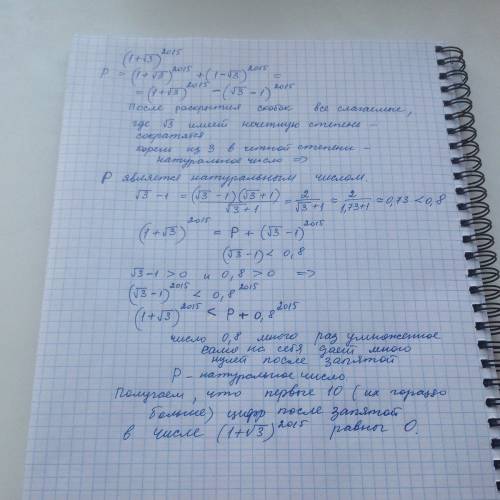 (1+√3)^2015
P = (1+√3)^2015 + (1-√3)^2015 =
= (1+√3)^2015 - (√3-1)^2015
После раскрытия скобок все слагаемые,
где √3 имеет нечетную степень
сократятся
корень из 3 в четной степени -
натуральное число =>
P является натуральным числом.
√3-1 = (√3-1)(√3+1)/(√3+1) = 2/(√3+1) ≈ 2/(1,73+1) ≈ 0,73 < 0,8
(1+√3)^2015 = P + (√3-1)^2015
(√3-1) < 0,8
√3-1 > 0 и 0,8 > 0 =>
(√3-1)^2015 < 0,8^2015
(1+√3)^2015 < P + 0,8^2015
число 0,8 много раз умноженное
само на себя дает много
нулей после запятой
P - натуральное число.
Получаем, что первые 10 (их гораздо
больше) цифр после запятой
в числе (1+√3)^2015 равны 0.